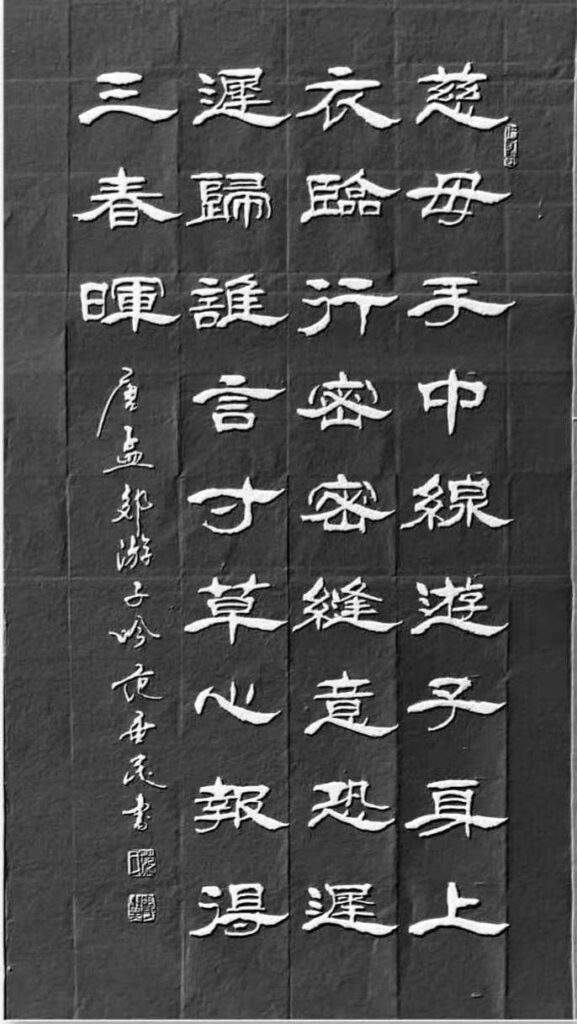 慈母手中線游子身上
衣臨行密密縫意恐遲
遲歸誰言寸草心報得
三春暉
唐孟郊游子吟范民書